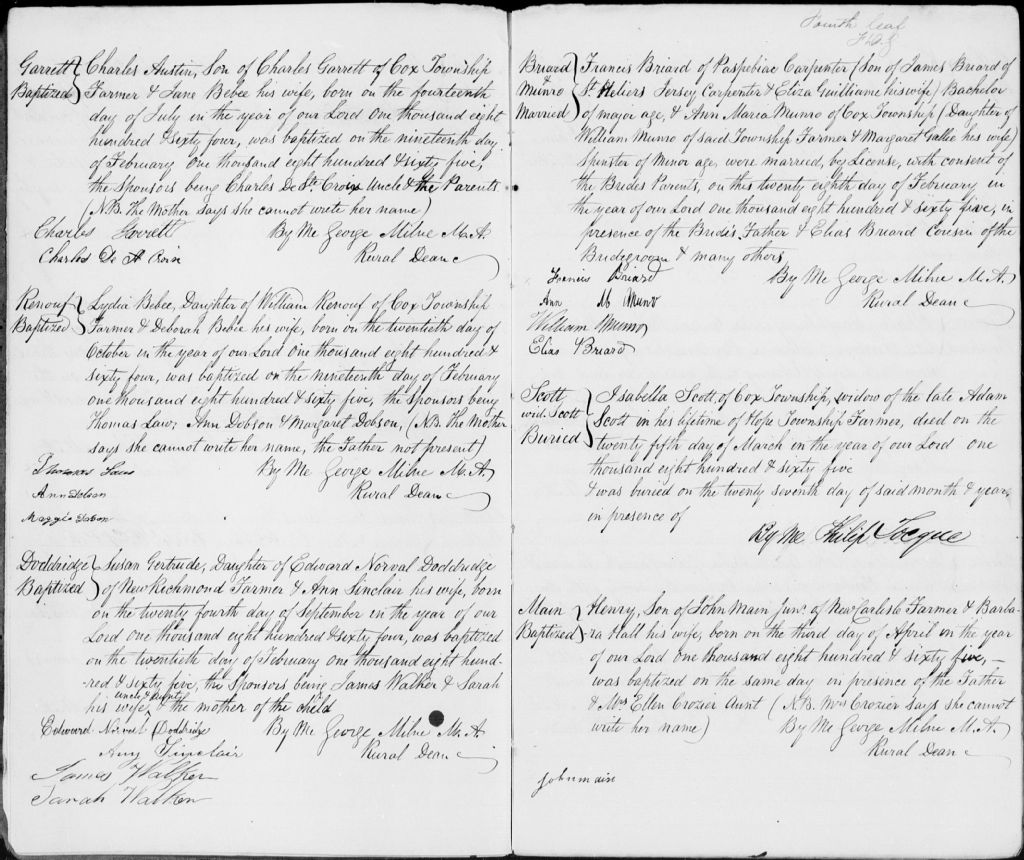 Garrett Baptized
Charles Austin, Son of Charles Garrett of Cox Township
Farmer & Jane Bebee his wife, born on the fourteenth
day of July in the year of our Lord One thousand eight
hundred & sixty four, was baptized on the nineteenth day
of February One thousand eight hundred & sixty five,
the Sponsors being Charles De Ste Croix Uncle & the Parents
(N.B. The Mother says she cannot write her name)
Charles Garrett By Me George Milne M.A.
Charles De St Croix Rural Dean
Renouf Baptized
Lydia Bebee, Daughter of William Renouf of Cox Township
Farmer & Deborah Bebee his wife, born on the twentieth day of
October in the year of our Lord One thousand eight hundred &
sixty four, was baptized on the nineteenth day of February
one thousand eight hundred & sixty five, the Sponsors being
Thomas Law, Ann Dobson & Margaret Dobson, (N.B. The Mother
says she cannot write her name, the Father not present)
Thomas Law By Me George Milne M.A.
Ann Dobson Rural Dean
Maggie Dobson
Doddridge Baptized
Susan Gertrude, Daughter of Edward Norval Doddridge
of New Richmond Farmer & Ann Sinclair his wife, born
on the twenty fourth day of September in the year of our
Lord One thousand eight hundred & sixty four, was baptized
on the twentieth day of February one thousand eight hund-
-red & sixty five, the Sponsors being James Walker & Sarah
his wife, uncle & aunt & the mother of the child
Edward Norval Doddridge By Me George Milne M.A.
Ann Sinclair Rural Dean
James Walker
Sarah Walker
Fourth leaf
Briard & Munro Married
Francis Briard of Paspebiac Carpenter (Son of James Briard of
St. Heliers Jersey Carpenter & Eliza Guilliame his wife) Bachelor
of major age, & Ann Maria Munro of Cox Township (Daughter of
William Munro of said Township Farmer & Margaret Gallie his wife)
Spinster of Minor age, were married, by License, with consent of
the Brides Parents, on this twenty eighth day of February in
the year of our Lord One thousand eight hundred & sixty five, in
presence of the Brides Father & Elias Briard Cousin of the
Bridegroom & many others
Francis Briard By Me George Milne M.A.
Ann M Munro Rural Dean
William Munro
Elias Briard
Scott wid. Scott Buried
Isabella Scott, of Cox Township, widow of the late Adam
Scott in his lifetime of Hope Township Farmer, died on the
twenty fifth day of March in the year of our Lord one
thousand eight hundred & sixty five
& was buried on the twenty seventh day of said month & year,
in presence of
By Me Philip Tocque
Main Baptized
Henry, Son of John Main Junr. of New Carlisle Farmer & Barba-
-ra Hall his wife, born on the third day of April in the year
of our Lord One thousand eight hundred & sixty five, –
was baptized on the same day in presence of the Father
& Mrs Ellen Crozier Aunt (N.B. Mrs Crozier says she cannot
write her name) By Me George Milne M.A.
Rural Dean
John main